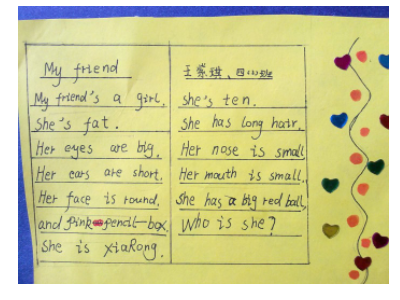 My friend
My friend's a girl.
She's fat.
Her eyes are big.
Her ears are short.
Her face is round.
and pink pencil-box
She is XiaRong.
王 琪、四(1)班
she's ten.
She has long hair.
Her nose is small
Her mouth is small.
She has a big red ball,
Who is she?